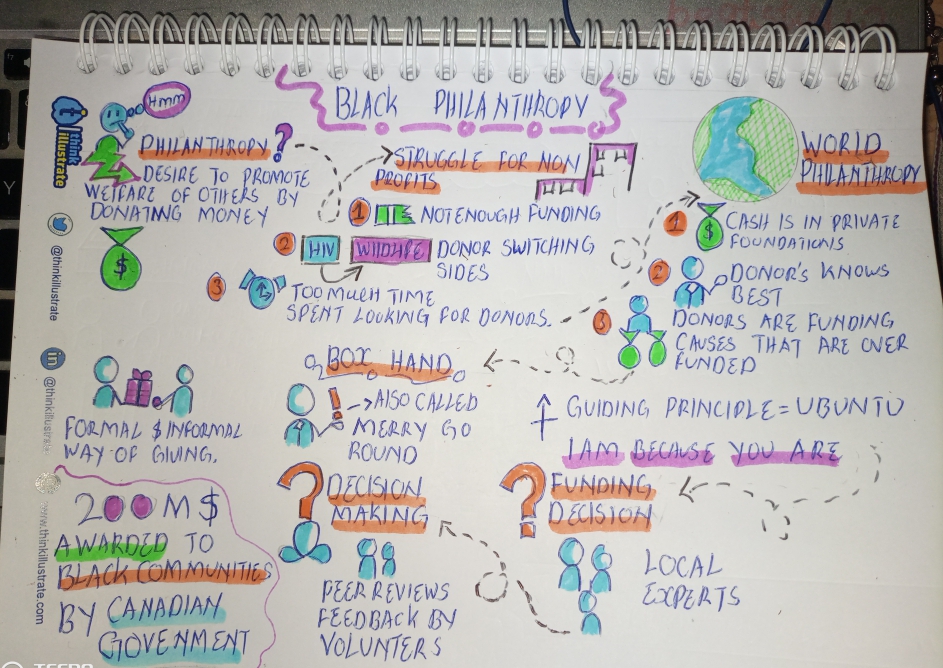 BLACK PHILANTHROPY
HMM
think
illustrate
PHILANTHROPY?
DESIRE TO PROMOTE
WELFARE OF OTHERS BY
DONATING MONEY
$
STRUGGLE FOR NON
PROFITS
1 NOT ENOUGH FUNDING
2 HIV WILDLIFE DONOR SWITCHING
SIDES
3 TOO MUCH TIME
SPENT LOOKING FOR DONORS.
WORLD
PHILANTHROPY
1 $ CASH IS IN PRIVATE
FOUNDATIONS
2 DONOR'S KNOWS
BEST
3 DONORS ARE FUNDING
CAUSES THAT ARE OVER
FUNDED
@thinkillustrate
in @thinkillustrate
www.thinkillustrate.com
BOX HAND
! ALSO CALLED
MERRY GO
ROUND
FORMAL $ INFORMAL
WAY OF GIVING.
GUIDING PRINCIPLE = UBUNTU
I AM BECAUSE YOU ARE
? FUNDING
DECISION
LOCAL
EXPERTS
? DECISION
MAKING
PEER REVIEWS
FEEDBACK BY
VOLUNTERS
200M$
AWARDED TO
BLACK COMMUNITIES
BY CANADIAN
GOVENMENT